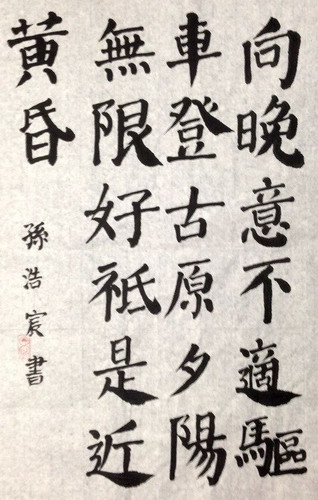 向晚意不適驅
車登古原夕陽
無限好祗是近
黃昏
孫浩宸書